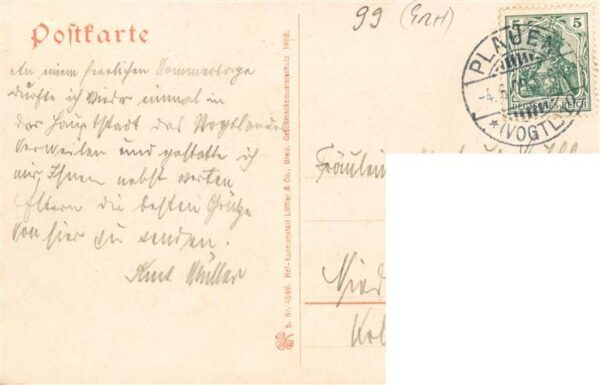 Postkarte
99
An einem herrlichen Sommertage
durfte ich wieder einmal in
der Hauptstadt des Vogtlandes
verweilen und gestatte ich
mir, Ihnen nebst werten
Eltern die besten Grüße
von hier zu senden.
Kurt Müller
b. Nr. 4646. Hof-Kunstanstalt Löffler & Co., Greiz. Geschmacksmusterschutz 1908.
PLAUEN
(VOGTL.)
5
Fräulein